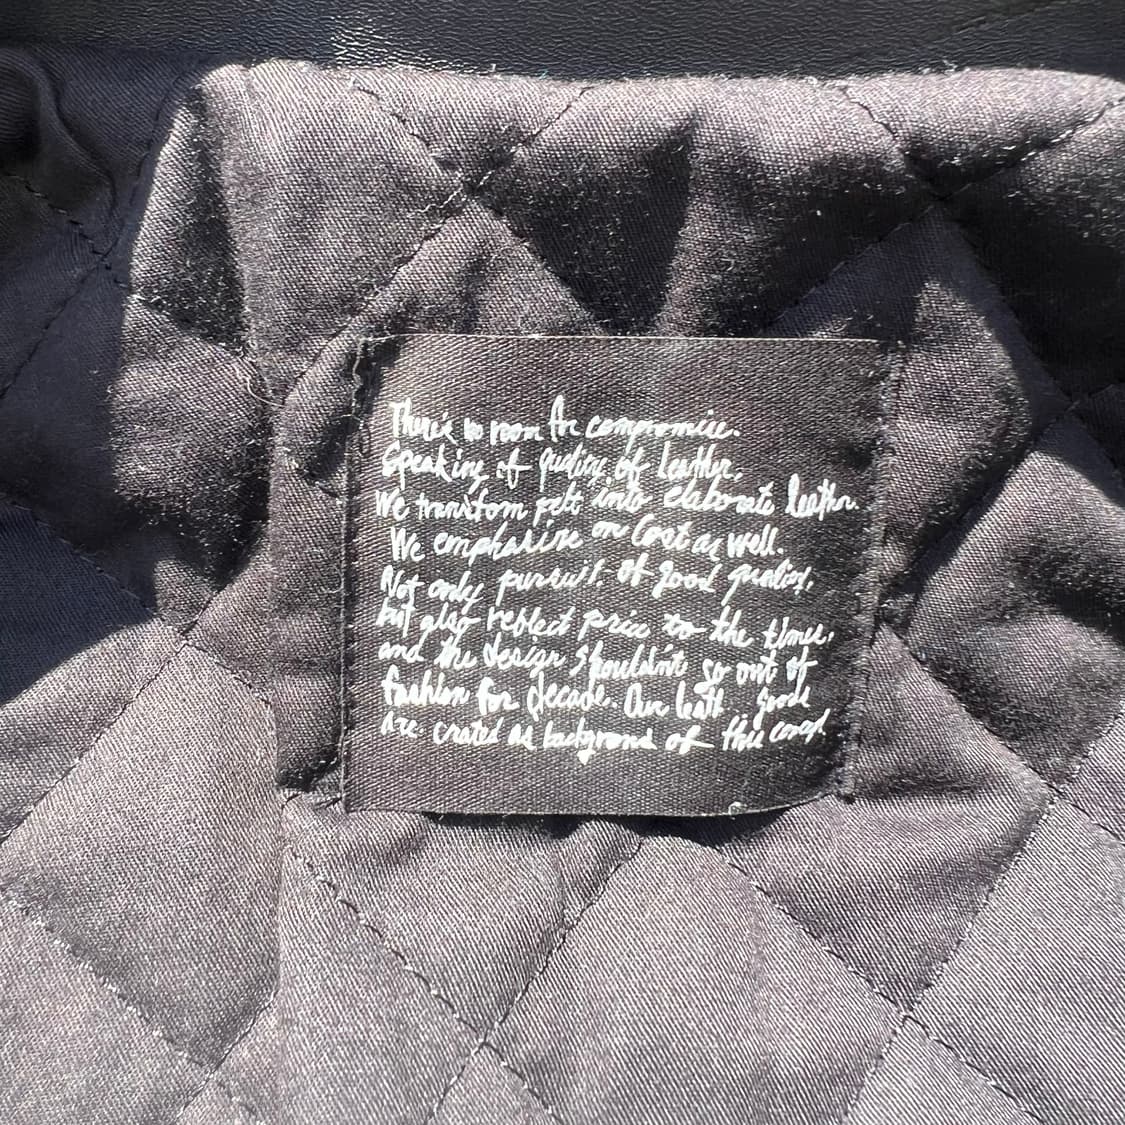 There's no room for compromise.
Speaking of quality of leather.
We transfom pelt into elaborate leather.
We emphasize on Cost as well.
Not only pursuit of good quality,
but also reflect price to the times,
and the design shouldn't go out of
fashion for decade. Our leath goods
are crated as background of this